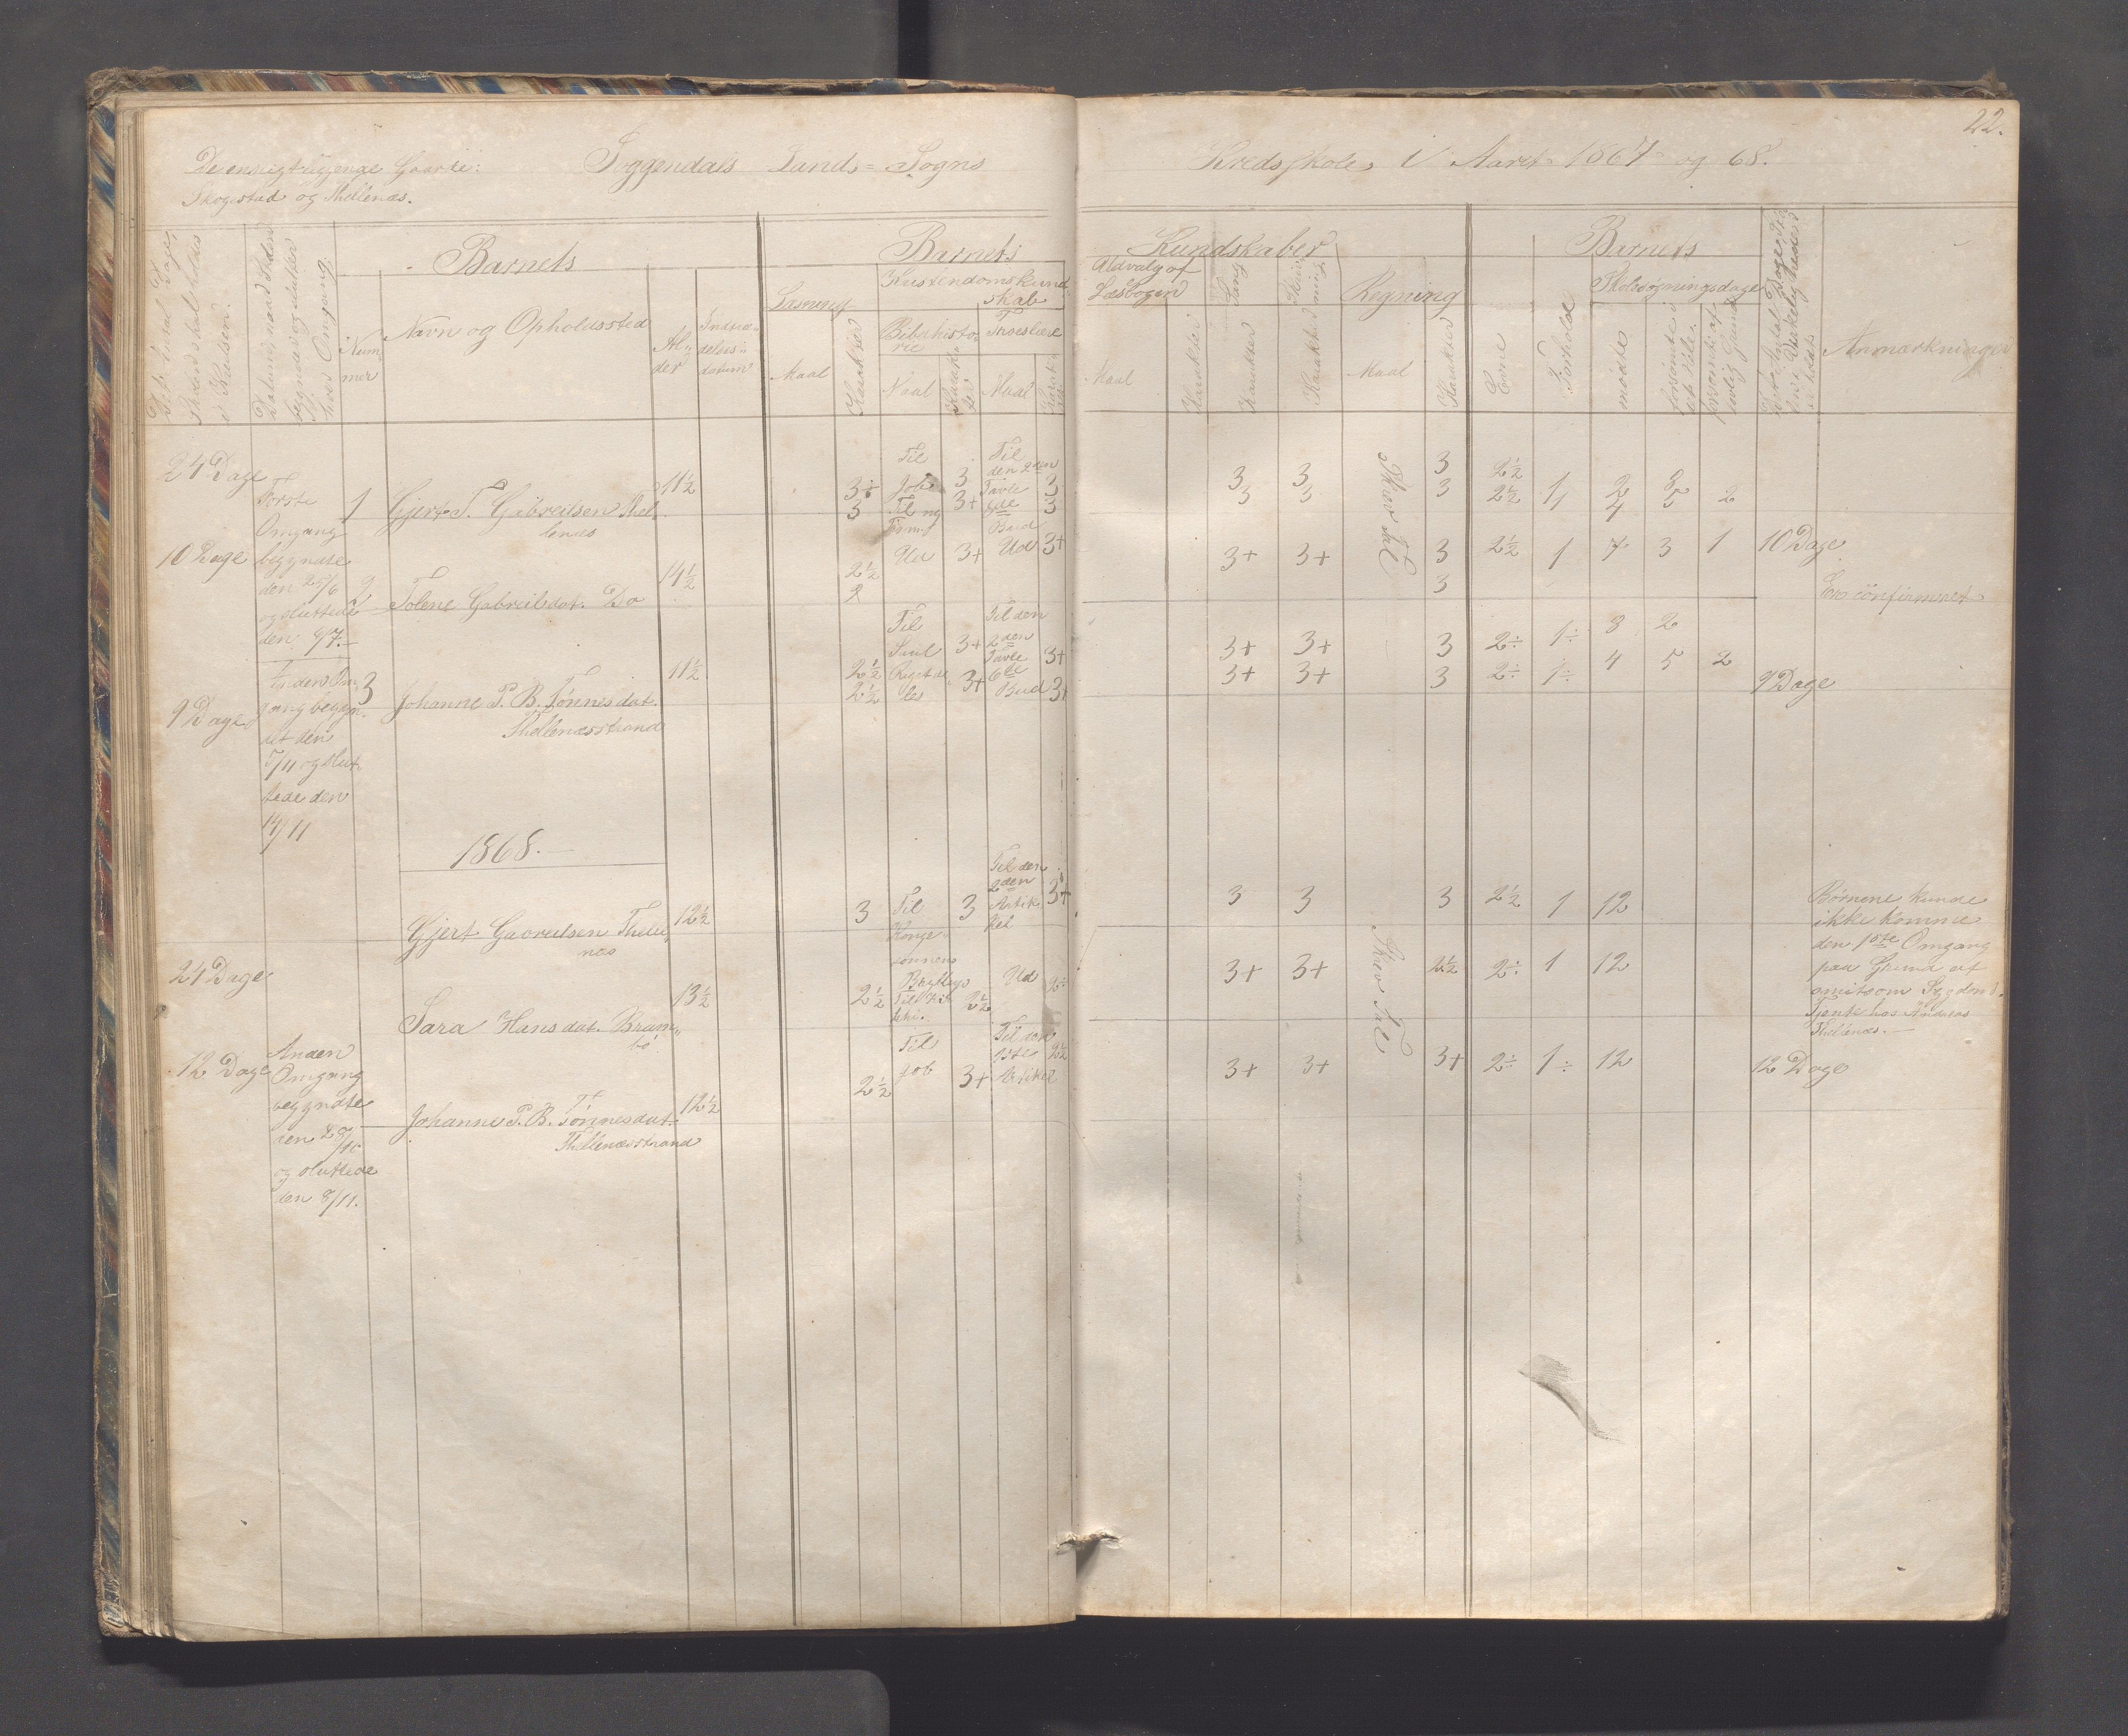 22.
De eensigtliggende Gaarde: Soggendals Lands = Sogns Kredsskole i Aaret 1867 og 68.
Skogestad og Thellenæs.
Barnets
Barnets Kundskaber
Barnets
Læsning
Kristendomskundskab
Udvalg af Læsbogen
Sang
Skrivning
Regning
Skolesøgningsdage
Anmærkninger
Nummer
Navn og Opholdssted
Alder
Indtrædelsesdatum
Bibelhistorie
Troeslære
Maal
Karakter
Maal
Maal
Maal
Karakter
Karakter
Karakter
Maal
Karakter
Evne
Forhold
mødte
24 Dage
Første
Omgang
begyndte
den 25/6
og sluttede
den 9/7.
10 Dage
1 Gjert T. Gabreilsen Thellenæs 11½
3+ Til Job 3 Til den 2den Tavle 3
3 3 3 2½ 1 2 8
3 3+ 8de Bud 3
3 3 3 2½ 1 4 5 2
Skiv Tal
2 Tolene Gabreilsdat. Do 14½
2½ Ud 3+ Ud 3+
3+ 3+ 3 2½ 1 7 3 1 10 Dage
2
3
Er confirmeret
9 Dage
Anden Omgang begyndt den
5/11 og sluttede den
14/11
3 Johanne P. B. Tønnesdat.
Thellenæsstrand
11½
2½ Til Saul 3+ Til den 2den Tavle 3+
3+ 3+ 3 2÷ 1÷ 3 2
2½ 3+ 6te Bud 3+
3+ 3+ 3 2÷ 1÷ 4 5 2 9 Dage
1868.
Gjert Gabreilsen Thellenæs 12½
3 Til Kongesønnens Bryllup 3 Til den 2den Artikel 3+
3 3 3 2½ 1 12
Børnene kunde
ikke komme
den 1ste Omgang
paa Grund af
smitsom Sygdom.
24 Dage
Sara Hansdat. Brambø 13½
2½ 2½ Ud 2÷
3+ 3+ 2½ 2÷ 1 12
Skiv Tal
Tjente hos Andreas
Thellenæs.
12 Dage
Anden
Omgang
begyndte
den 28/10
og sluttede
den 8/11.
Johanne P. B. Tønnesdat.
Thellenæsstrand
12½
2½ Til Job 3+ Til den 1ste Artikel 2½
3+ 3+ 3+ 2÷ 1÷ 12 12 Dage